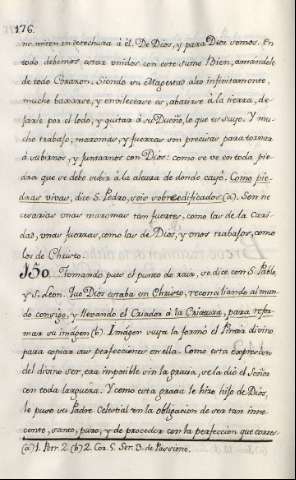 176.
no miren en derechura á él. De Dios, y para Dios somos. En
todo debemos estar unidos con este sumo Bien, amandole
de todo Corazon. Siendo su Magestad alto infinitamente,
mucho baxarse, y envilecerse es, abatirse á la tierra, de-
jarse por el lodo, y quitar á su Dueño, lo que es suyo. Y mu-
cho trabajo, maromas, y fuerzas son precisas para tornar
á subirnos, y juntarnos con Dios: como se ve en toda pie-
dra que se debe subir á la altura de donde cayó. Como pie-
dras vivas, dice S. Pedro, sois sobreedificados (a). Son ne-
cesarias unas maromas tan fuertes, como las de la Cari-
dad, unas fuerzas, como las de Dios, y unos trabajos, como
los de Christo.
150. Tomando pues el punto de raiz, se dice con S. Pablo,
y S. Leon. Que Dios estaba en Christo, reconciliando al mun-
do consigo, y llevando el Criador á la Criatura, para refor-
mar su imágen (b). Imágen suya la formó el Pintor divino
para copiar sus perfecciones en ella. Como esta expresion
del divino ser, era imposible sin la gracia, se la dió el Señor
con toda largueza. Y como esta gracia le hizo hijo de Dios,
le puso su Padre Celestial en la obligacion de ser tan ino-
cente, santo, puro, y de proceder con la perfeccion que corres-
(a) 1. Petr. 2. (b) 2. Cor. 5. Ser. de Passione.